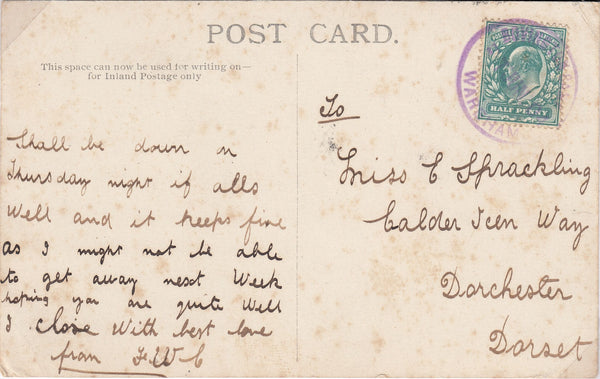 POST CARD.
This space can now be used for writing on—
for Inland Postage only
HALF PENNY
WAREHAM
To
Miss E Sprackling
Calder Teen Way
Dorchester
Dorset
Shall be down n
Thursday night if alls
Well and it keeps fine
as I might not be able
to get away next Week
hoping you are quite Well
I close With best love
from F.W.C